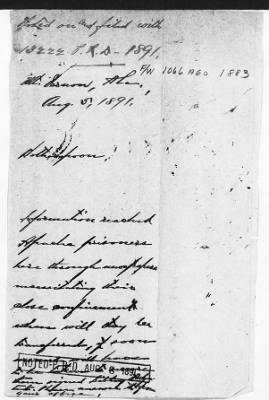 Noted on and filed with
15222 P.R.D - 1891.
F/W 1066 AGO 1883
Mt. Vernon, Ala.,
Aug. 5, 1891.
Witherspoon.
Information reached
Apache prisoners
here through newspapers
necessitating their
close confinement
when will they be
transferred, if soon
NOTED-P.R.D. AUG 8 1891